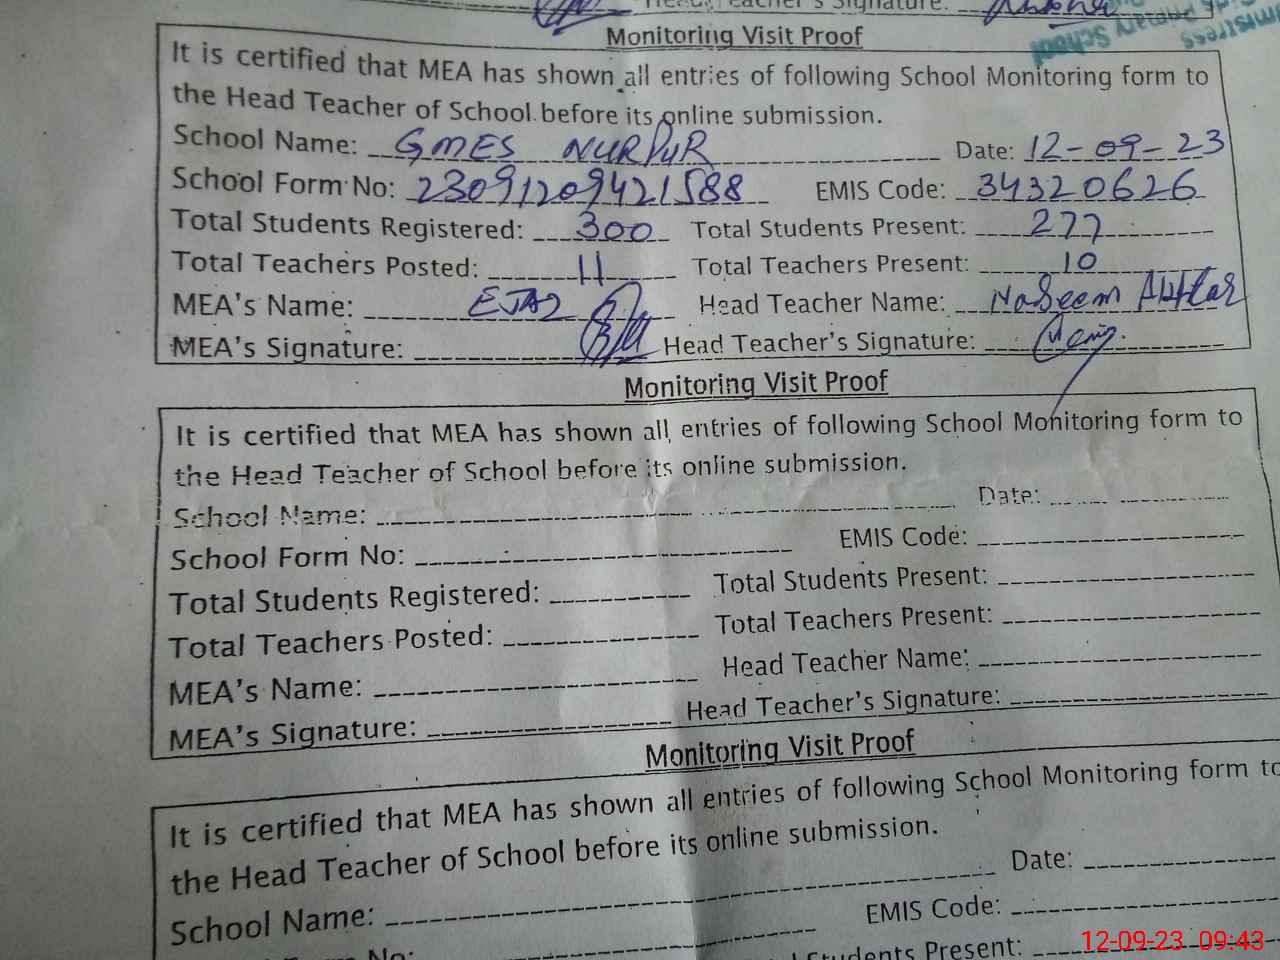 Head Teacher's Signature:
Monitoring Visit Proof
It is certified that MEA has shown all entries of following School Monitoring form to
the Head Teacher of School before its online submission.
School Name: GMES NURPUR Date: 12-09-23
School Form No: 23091209421588 EMIS Code: 34320626
Total Students Registered: 300 Total Students Present: 277
Total Teachers Posted: 11 Total Teachers Present: 10
MEA's Name: EJAZ Head Teacher Name: Naseem Akhtar
MEA's Signature: Head Teacher's Signature:
Monitoring Visit Proof
It is certified that MEA has shown all entries of following School Monitoring form to
the Head Teacher of School before its online submission.
School Name: Date:
School Form No: EMIS Code:
Total Students Registered: Total Students Present:
Total Teachers Posted: Total Teachers Present:
MEA's Name: Head Teacher Name:
MEA's Signature: Head Teacher's Signature:
Monitoring Visit Proof
It is certified that MEA has shown all entries of following School Monitoring form to
the Head Teacher of School before its online submission.
School Name: Date:
No: EMIS Code:
Students Present:
12-09-23 09:43